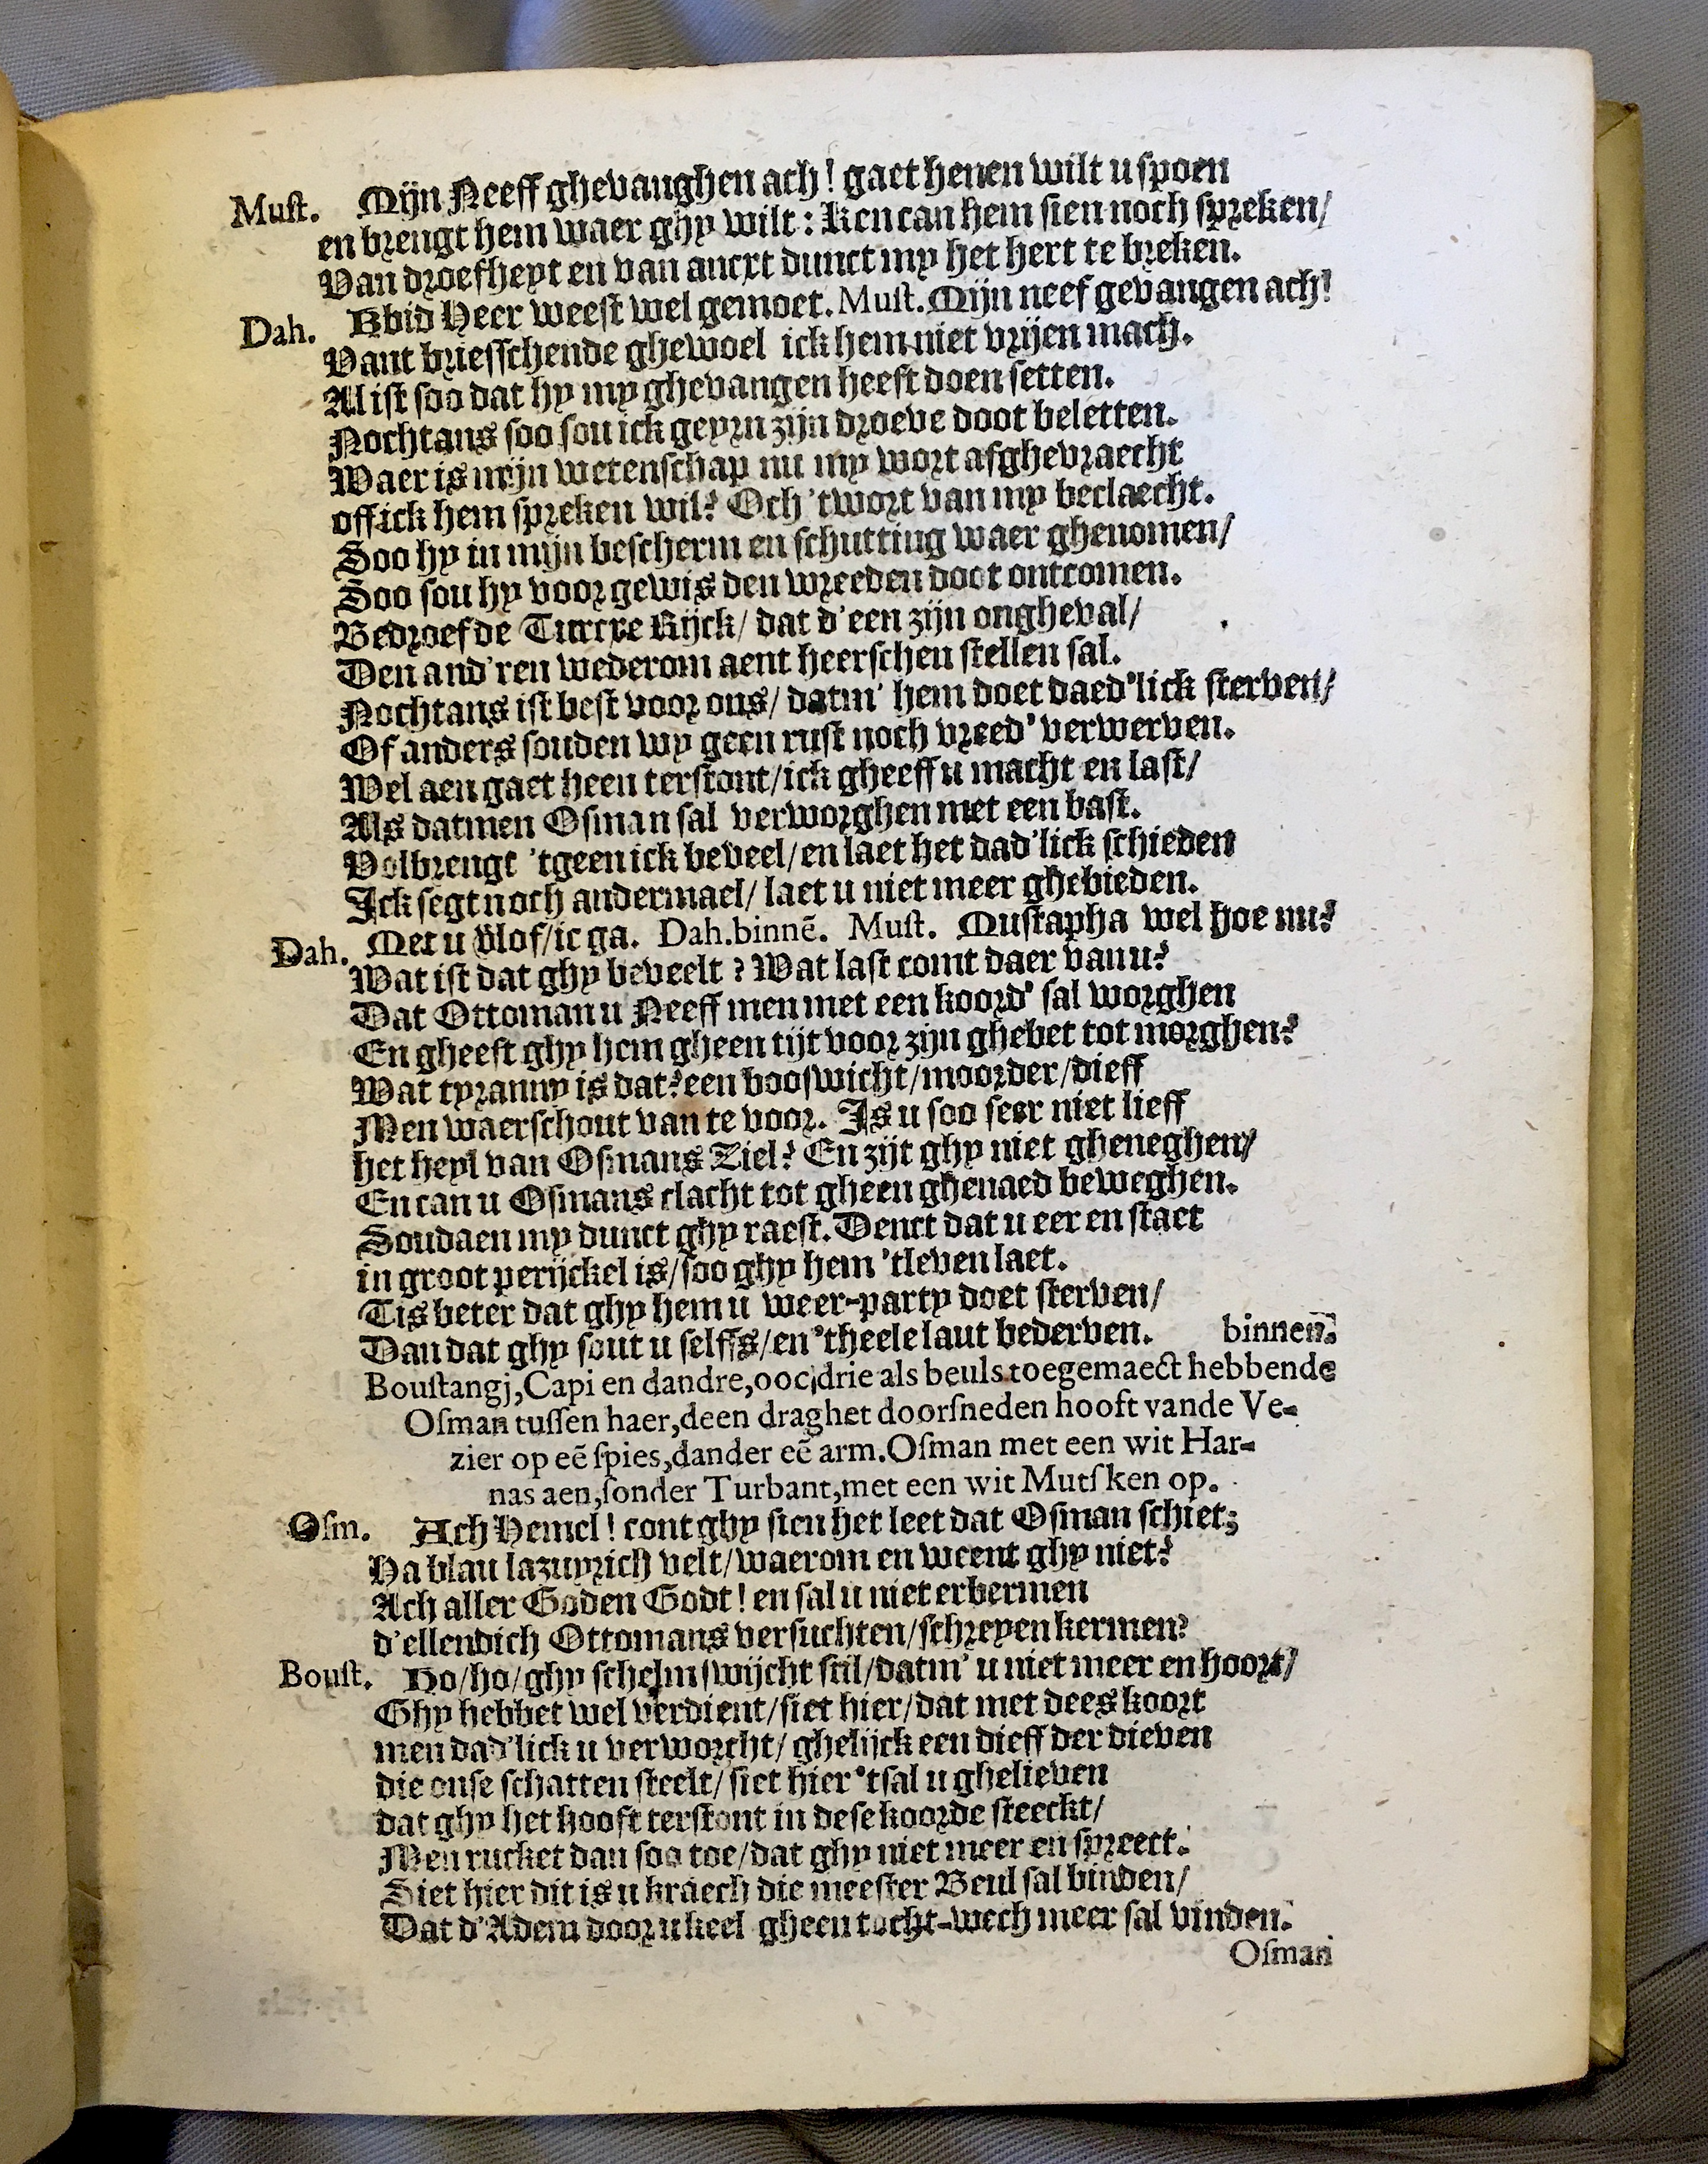 Must. Mijn Neeff ghevanghen ach! gaet henen wilt u spoen
en brengt hem waer ghy wilt: Ken can hem sien noch spreken/
Van droefheyt en van ancxt dunct my het hert te breken.
Dah. Kbid Heer weest wel gemoet. Must. Mijn neef gevangen ach!
Vant briesschende ghewoel ick hem niet vrijen mach.
Al ist soo dat hy my ghevangen heeft doen setten.
Nochtans soo sou ick geyrn zijn droeve doot beletten.
Waer is mijn wetenschap nu my wort afghevraecht
off ick hem spreken wil? Och 'twort van my beclaecht.
Soo hy in mijn bescherm en schutting waer ghenomen/
Soo sou hy voor gewis den wreeden doot ontcomen.
Bedroefde Turcxe Rijck/ dat d'een zijn ongheval/
Den and'ren wederom aent heerschen stellen sal.
Nochtans ist best voor ons/ datm' hem doet daed'lick sterven/
Of anders souden wy geen rust noch vreed' verwerven.
Wel aen gaet heen terstont/ick gheeff u macht en last/
Als datmen Osman sal verworghen met een bast.
Volbrengt 'tgeen ick beveel/en laet het dad'lick schieden
Ick segt noch andermael/ laet u niet meer ghebieden.
Dah. Met u vlof/ic ga. Dah.binnē. Must. Mustapha wel hoe nu?
Wat ist dat ghy beveelt? Wat last comt daer van u?
Dat Ottoman u Neeff men met een koord' sal worghen
En gheeft ghy hem gheen tijt voor zijn ghebet tot morghen?
Wat tyranny is dat? een booswicht/moorder/dieff
Men waerschout van te voor. Is u soo seer niet lieff
het heyl van Osmans Ziel? En zijt ghy niet gheneghen/
En can u Osmans clacht tot gheen ghenaed beweghen.
Soudaen my dunct ghy raest. Denct dat u eer en staet
in groot perijckel is/soo ghy hem 'tleven laet.
Tis beter dat ghy hem u weer-party doet sterven/
Dan dat ghy sout u selffs/en 'theele laut bederven. binnen.
Boustangj, Capi en dandre, ooc drie als beuls toegemaect hebbende
Osman tussen haer, deen draghet doorsneden hooft vande Ve-
zier op eē spies, dander eē arm. Osman met een wit Har-
nas aen, sonder Turbant, met een wit Mutsken op.
Osm. Ach Hemel! cont ghy sien het leet dat Osman schiet;
Ha blau lazuyrich velt/waerom en weent ghy niet?
Ach aller Goden Godt! en sal u niet erbermen
d'ellendich Ottomans versuchten/schreyen kermen?
Boust. Ho/ho/ghy schelm swijcht stil/datm' u niet meer en hoort/
Ghy hebbet wel verdient/siet hier/dat met dees koort
men dad'lick u verworcht/ ghelijck een dieff der dieven
die onse schatten steelt/ siet hier 'tsal u ghelieven
dat ghy het hooft terstont in dese koorde steeckt/
Men rucket dan soo toe/dat ghy niet meer en spreect.
Siet hier dit is u kraech die meester Beul sal binden/
Dat d'Adem door u keel gheen tocht-wech meer sal vinden.
Osman